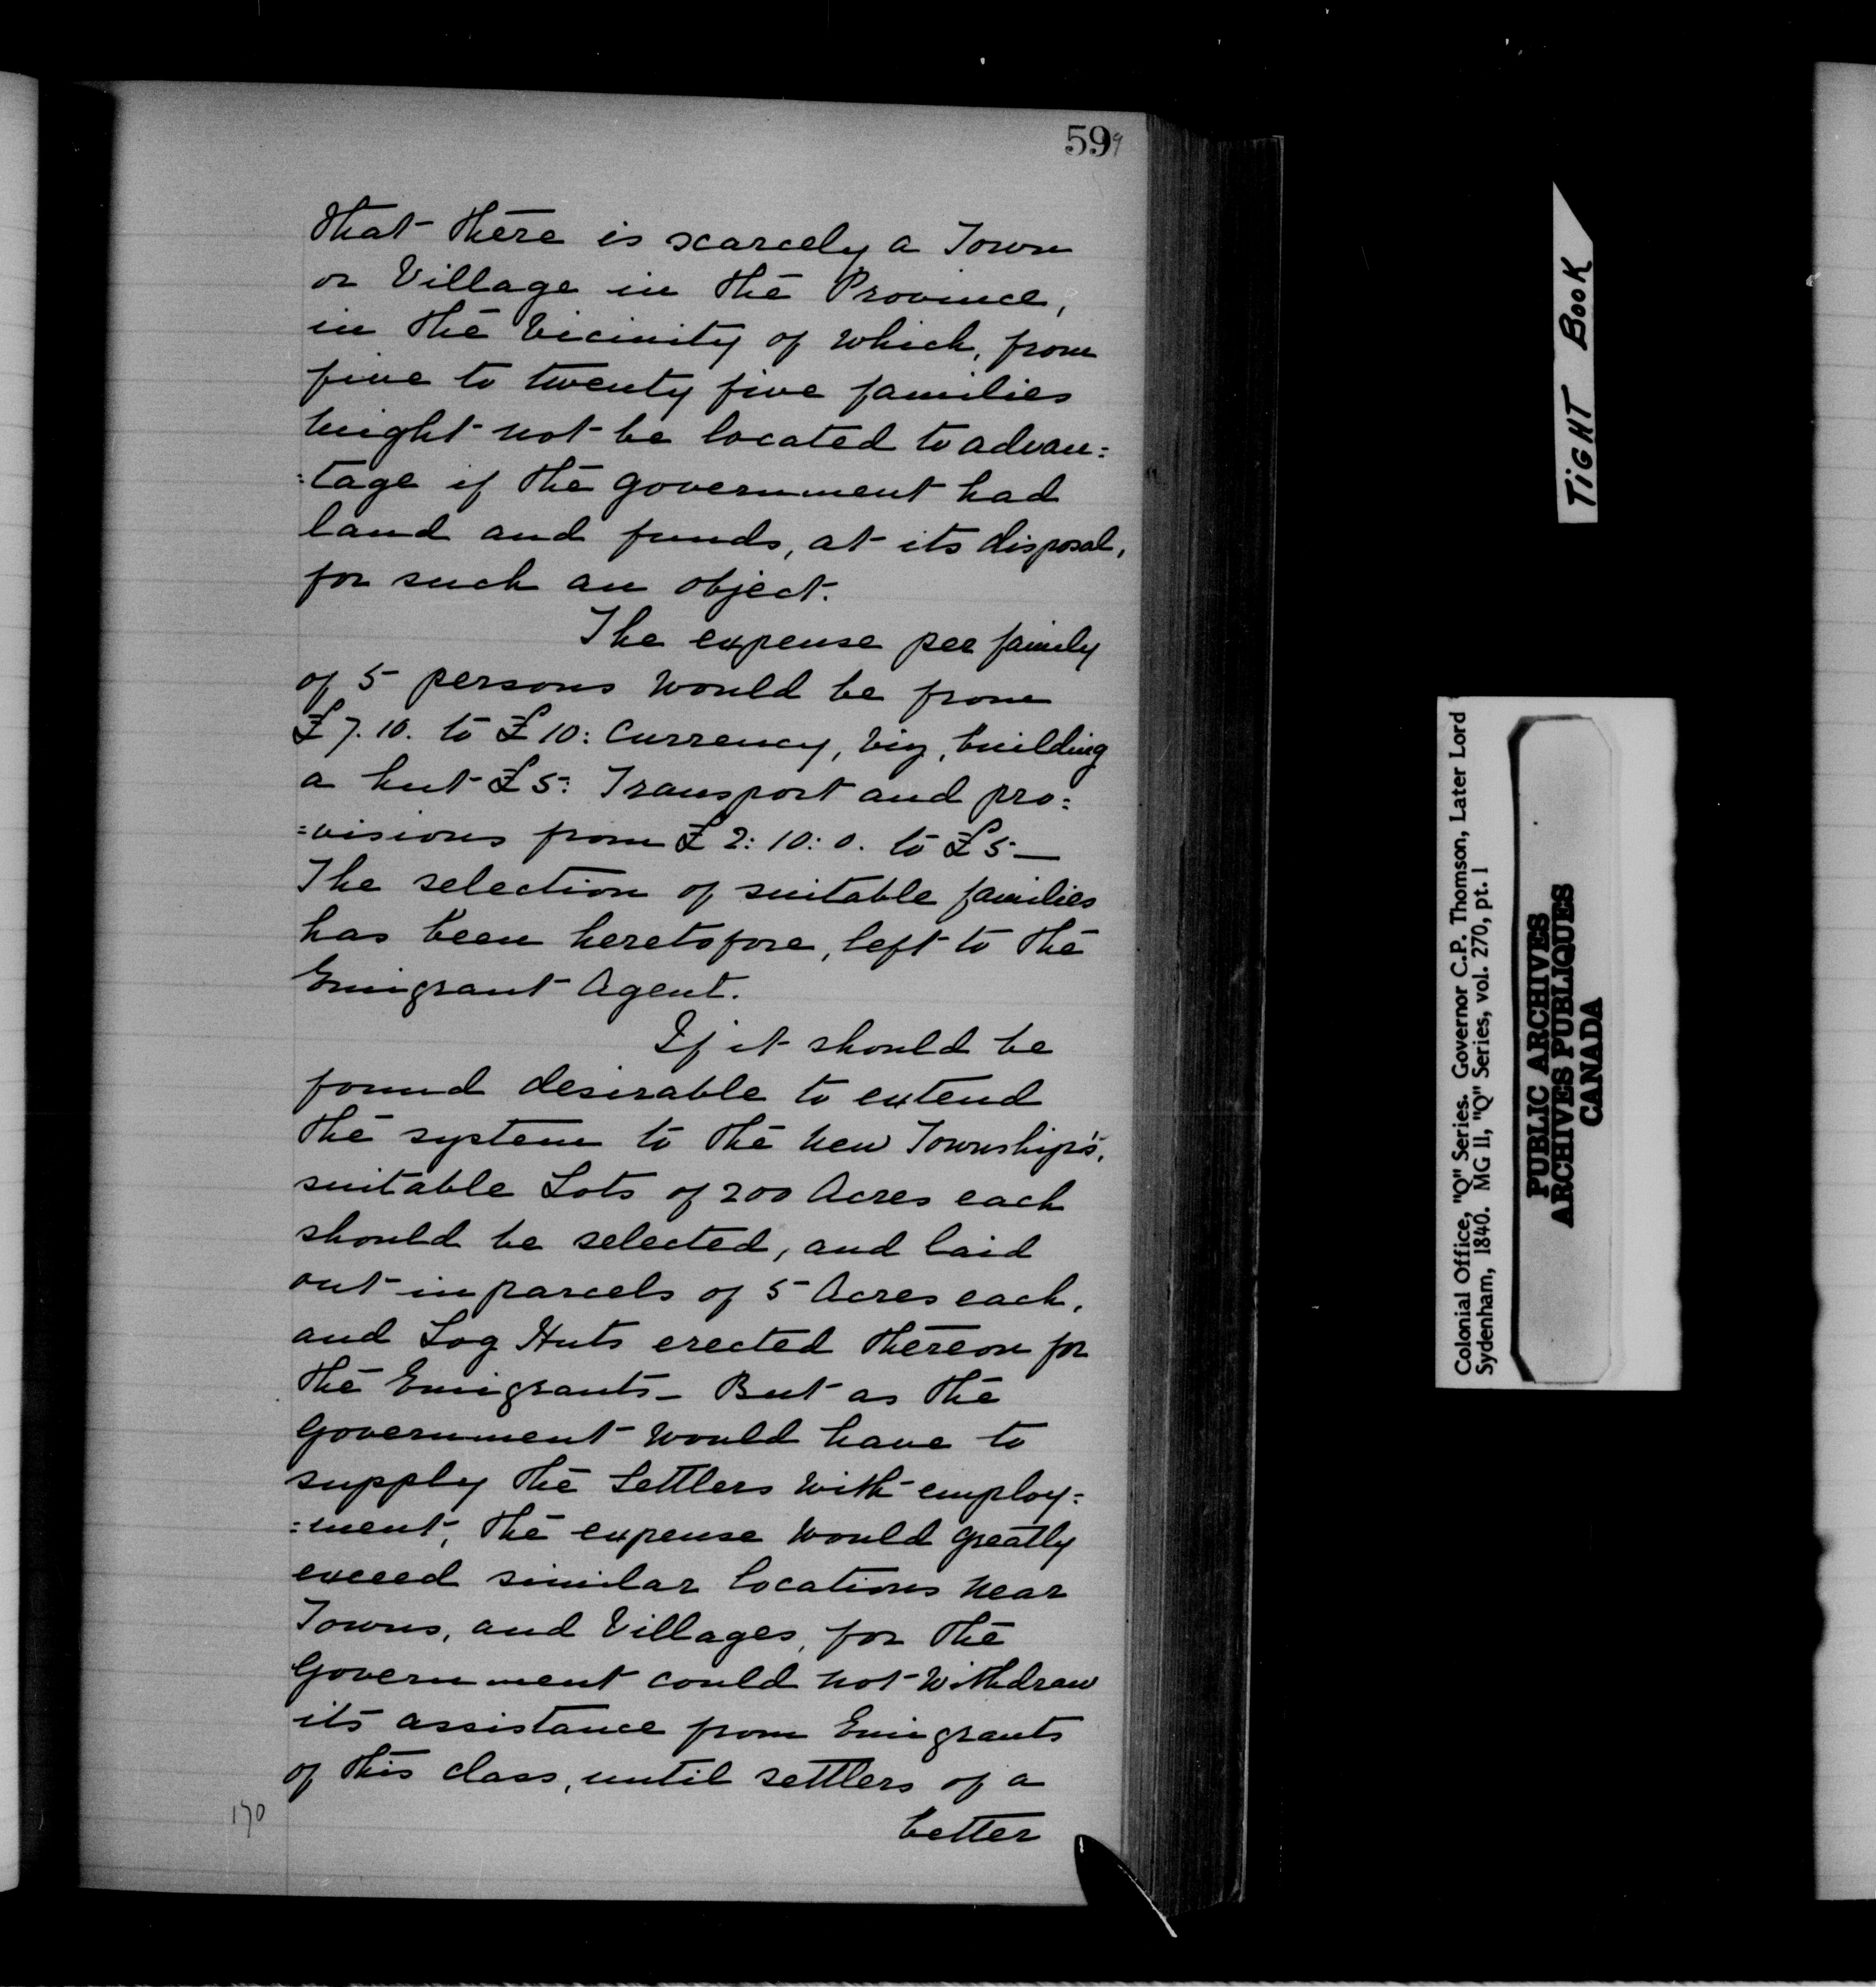 599
that there is scarcely a Town
or Village in the Province,
in the Vicinity of which, from
five to twenty five families
might not be located to advan=
=tage if the Government had
land and funds, at its disposal,
for such an object.
The expense per family
of 5 persons would be from
£7.10. to £10: Currency, viz, building
a hut £5: Transport and pro=
=visions from £2:10:0. to £5—
The selection of suitable families
has been heretofore, left to the
Emigrant Agent.
If it should be
found desirable to extend
the system to the new Township's,
suitable Lots of 200 Acres each
should be selected, and laid
out in parcels of 5 Acres each,
and Log Huts erected thereon for
the Emigrants— But as the
Government would have to
supply the Settlers with employ=
=ment, the expense would greatly
exceed similar locations near
Towns, and Villages, for the
Government could not withdraw
its assistance from Emigrants
of this class, until settlers of a
better
170
TIGHT BOOK
Colonial Office, "Q" Series. Governor C.P. Thomson, Later Lord
Sydenham, 1840. MG 11, "Q" Series, vol. 270, pt. 1
PUBLIC ARCHIVES
ARCHIVES PUBLIQUES
CANADA